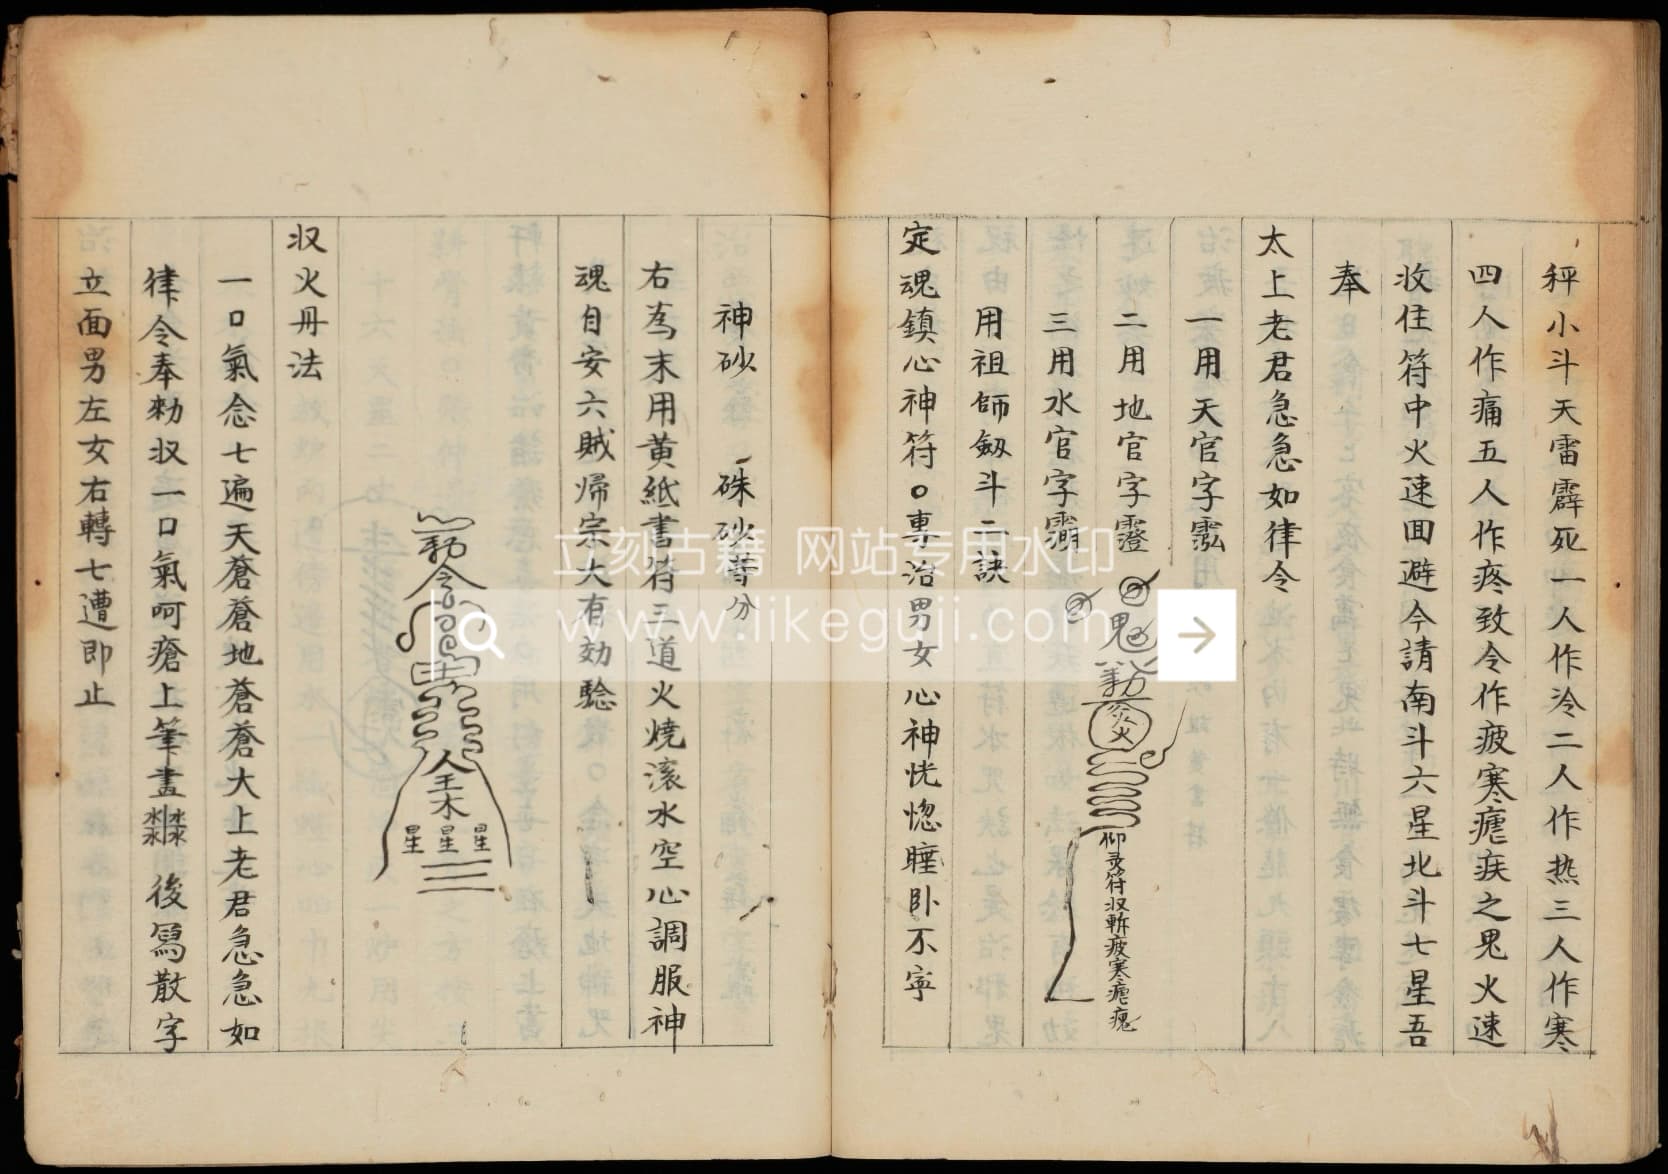 秤小斗天雷霹死一人作冷二人作热三人作寒
四人作痛五人作疼致令作疲寒瘧疾之鬼火速
收住符中火速回避今請南斗六星北斗七星吾
奉
太上老君急急如律令
一用天官字
二用地官字
三用水官字
鬼
仰灵符収斬疲寒瘧鬼
用祖師劔斗二訣
定魂鎮心神符〇専治男女心神恍惚睡卧不寧
神砂 硃砂等分
右為末用黄紙書符三道火燒滚水空心調服神
魂自安六贼帰宗大有効驗
令
星 星 星
収火丹法
一口氣念七遍天蒼蒼地蒼蒼大上老君急急如
律令奉勑収一口氣呵瘡上筆畫 後寫散字
立面男左女右轉七遭即止
立刻古籍 网站专用水印
www.likeguji.com